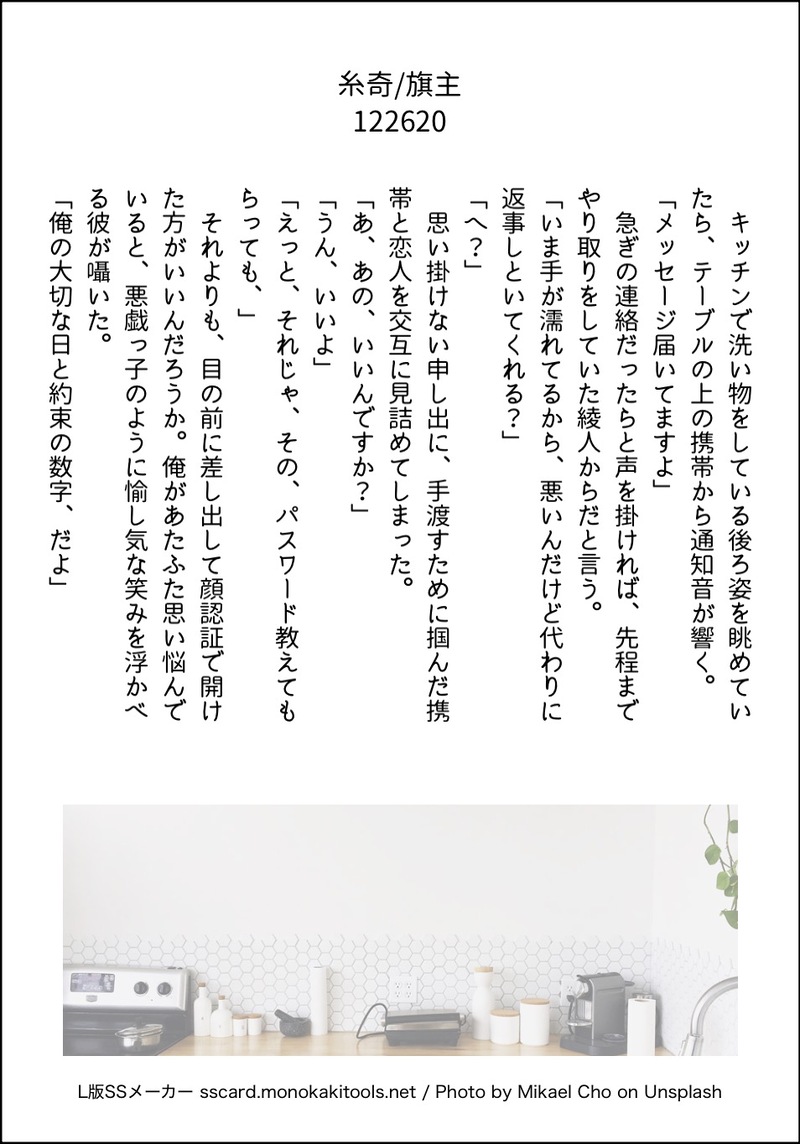 糸奇/旗主
122620
　キッチンで洗い物をしている後ろ姿を眺めてい
たら、テーブルの上の携帯から通知音が響く。
「メッセージ届いてますよ」
　急ぎの連絡だったらと声を掛ければ、先程まで
やり取りをしていた綾人からだと言う。
「いま手が濡れてるから、悪いんだけど代わりに
返事しといてくれる？」
「へ？」
　思い掛けない申し出に、手渡すために掴んだ携
帯と恋人を交互に見詰めてしまった。
「あ、あの、いいんですか？」
「うん、いいよ」
「えっと、それじゃ、その、パスワード教えても
らっても、」
　それよりも、目の前に差し出して顔認証で開け
た方がいいんだろうか。俺があたふた思い悩んで
いると、悪戯っ子のように愉し気な笑みを浮かべ
る彼が囁いた。
「俺の大切な日と約束の数字、だよ」
L版SSメーカー sscard.monokakitools.net / Photo by Mikael Cho on Unsplash